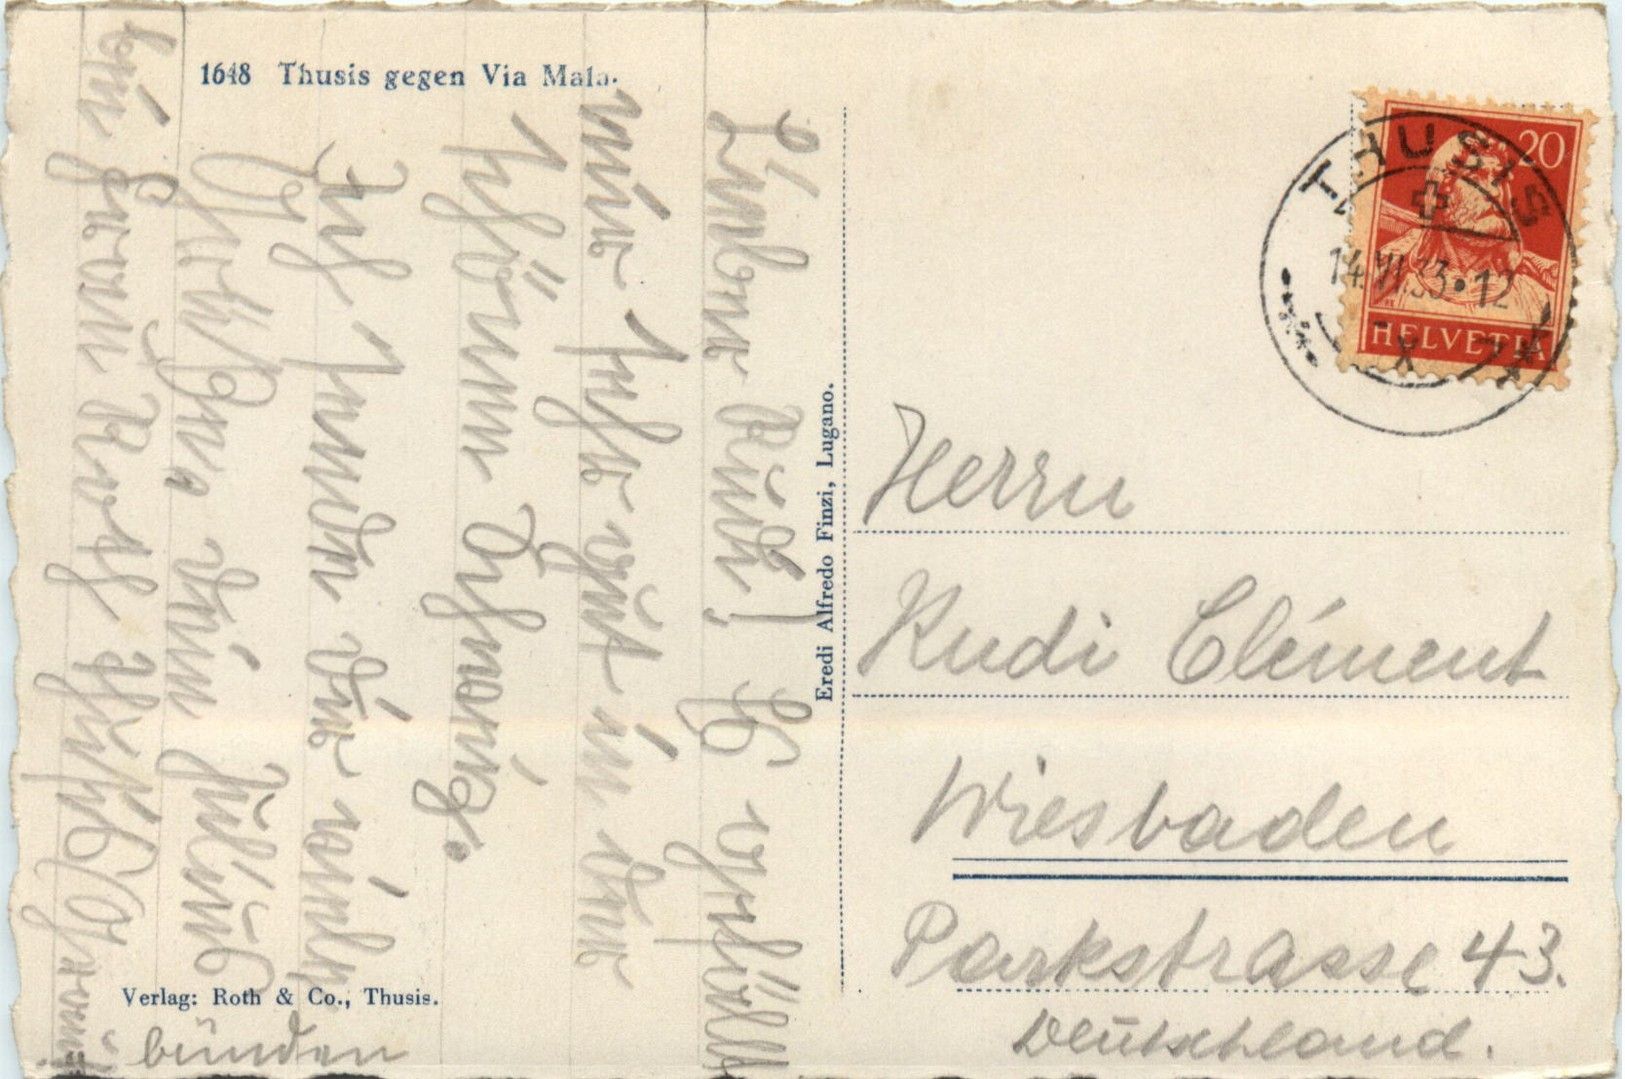 1648 Thusis gegen Via Mala.
THUSIS
14.VI.33·12
20
HELVETIA
Lieber Rudi! Es gefällt
mir sehr gut in der
schönen Schweiz.
Ich sende dir
dein
bei Frau Roth Thusis
Grau=
bünden
Verlag: Roth & Co., Thusis.
Eredi Alfredo Finzi, Lugano.
Herrn
Rudi Clément
Wiesbaden
Parkstrasse 43.
Deutschland.